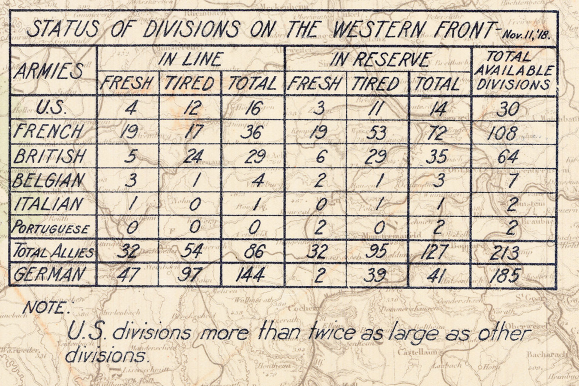 STATUS OF DIVISIONS ON THE WESTERN FRONT - Nov. 11, '18.
ARMIES IN LINE IN RESERVE TOTAL AVAILABLE DIVISIONS
FRESH TIRED TOTAL FRESH TIRED TOTAL
U.S. 4 12 16 3 11 14 30
FRENCH 19 17 36 19 53 72 108
BRITISH 5 24 29 6 29 35 64
BELGIAN 3 1 4 2 1 3 7
ITALIAN 1 0 1 0 1 1 2
PORTUGUESE 0 0 0 2 0 2 2
TOTAL ALLIES 32 54 86 32 95 127 213
GERMAN 47 97 144 2 39 41 185
NOTE:
U.S. divisions more than twice as large as other
divisions.